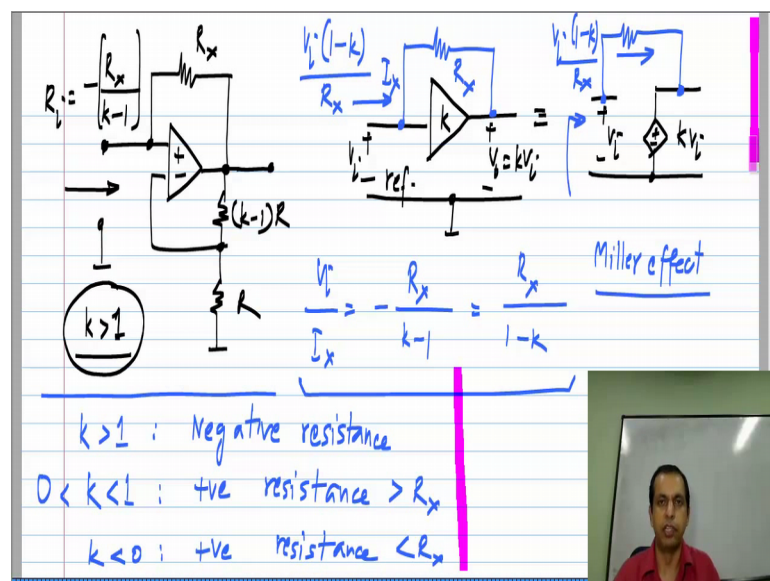 R_i = -[R_x/(k-1)]
R_x
+
-
(k-1)R
R
k>1
V_i(1-k)/R_x
I_x
R_x
k
+
V_i
- ref.
+
V_o=kV_i
-
≡
V_i(1-k)/R_x
+
V_i
-
+
-
kV_i
V_i/I_x = - R_x/(k-1) = R_x/(1-k)
Miller effect
k>1 : Negative resistance
0< k<1 : +ve resistance > R_x
k<0 : +ve resistance <R_x